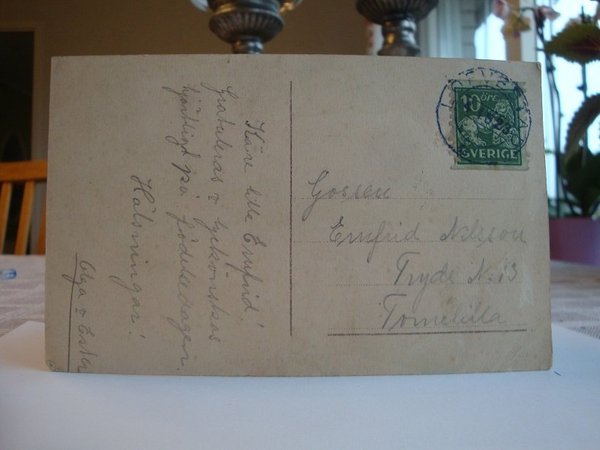 Käre lille Ernfrid!
Gratuleras & lyckönskas
hjärtligt på födelsedagen.
Hälsningar!
Olga & Ester
10 ÖRE
SVERIGE
Gossen
Ernfrid Nilsson
Tryde No 13
Tomelilla